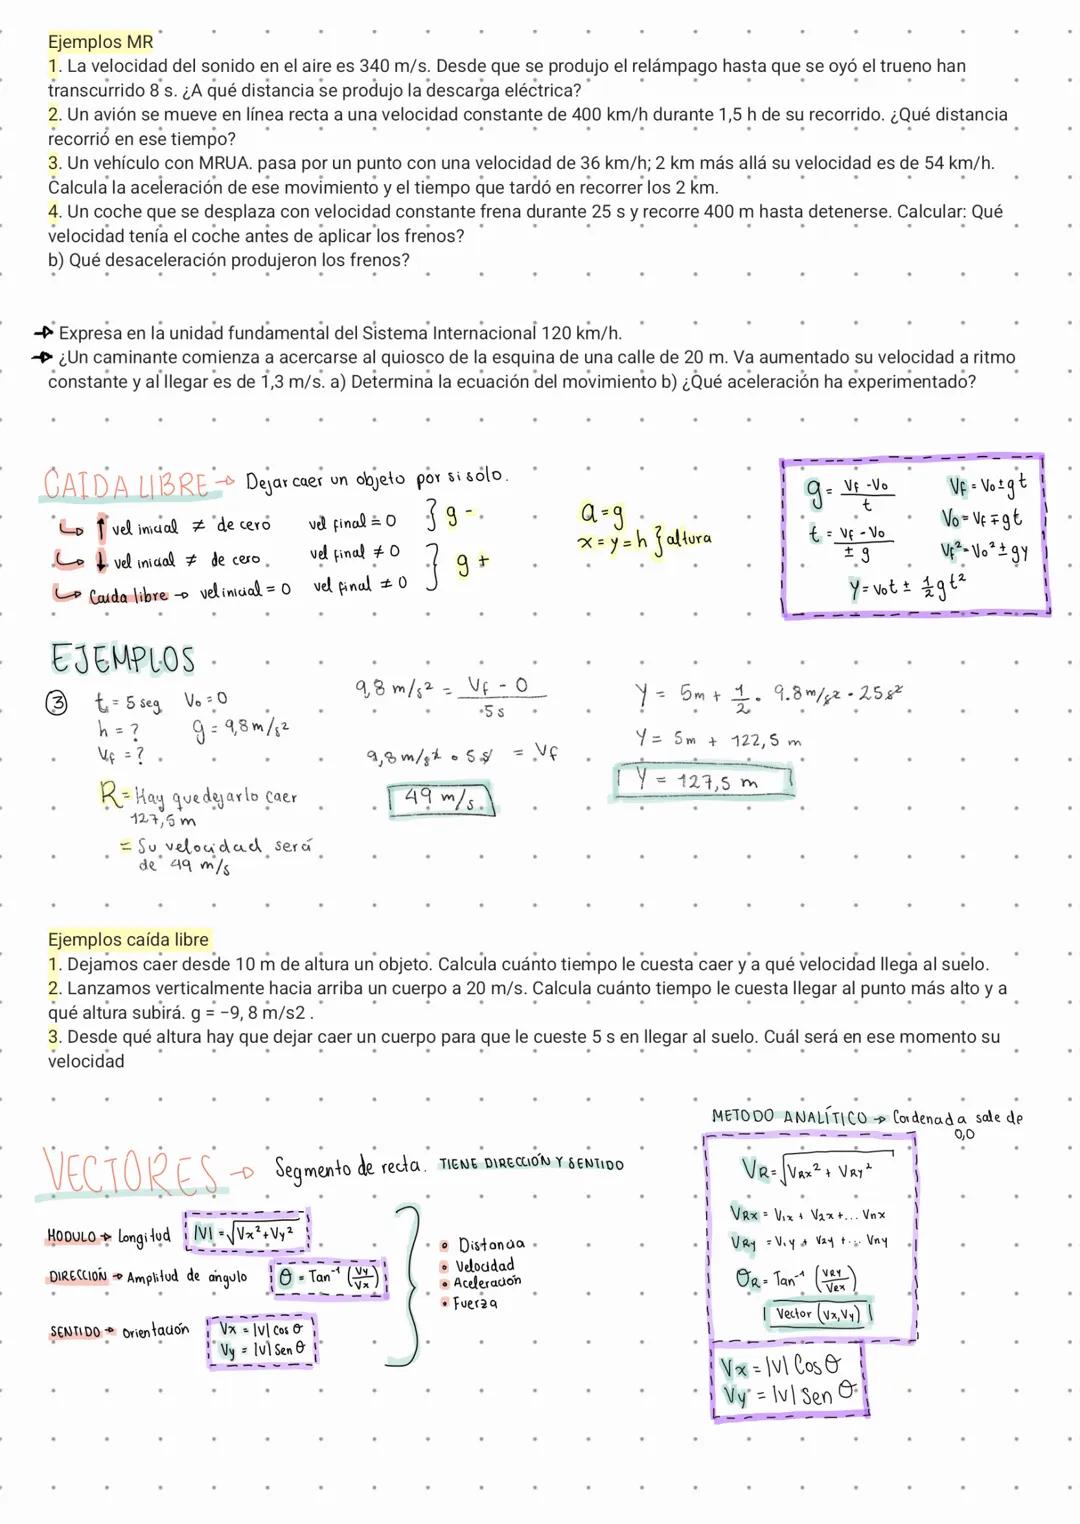 Ejemplos MR
1. La velocidad del sonido en el aire es 340 m/s. Desde que se produjo el relámpago hasta que se oyó el trueno han
transcurrido 8 s. ¿A qué distancia se produjo la descarga eléctrica?
2. Un avión se mueve en línea recta a una velocidad constante de 400 km/h durante 1,5 h de su recorrido. ¿Qué distancia
recorrió en ese tiempo?
3. Un vehículo con MRUA. pasa por un punto con una velocidad de 36 km/h; 2 km más allá su velocidad es de 54 km/h.
Calcula la aceleración de ese movimiento y el tiempo que tardó en recorrer los 2 km.
4. Un coche que se desplaza con velocidad constante frena durante 25 s y recorre 400 m hasta detenerse. Calcular: Qué
velocidad tenía el coche antes de aplicar los frenos?
b) Qué desaceleración produjeron los frenos?
→ Expresa en la unidad fundamental del Sistema Internacional 120 km/h.
→ ¿Un caminante comienza a acercarse al quiosco de la esquina de una calle de 20 m. Va aumentado su velocidad a ritmo
constante y al llegar es de 1,3 m/s. a) Determina la ecuación del movimiento b) ¿Qué aceleración ha experimentado?
CAIDA LIBRE → Dejar caer un objeto por si solo.
↳ ↑ vel inicial ≠ de cero vel final = 0 } g -
↳ ↓ vel inicial ≠ de cero vel final ≠ 0 } g +
↳ Caida libre → vel inicial = 0 vel final ≠ 0
a = g
x = y = h } altura
g = (Vf - Vo) / t
t = (Vf - Vo) / ± g
Vf = Vo ± gt
Vo = Vf ∓ gt
Vf² = Vo² ± gy
y = vot ± 1/2 gt²
EJEMPLOS
③ t = 5 seg Vo = 0
h = ? g = 9,8 m/s²
Vf = ?
R = Hay que dejarlo caer
127,5 m
= Su velocidad será
de 49 m/s
9,8 m/s² = (Vf - 0) / 5 s
9,8 m/s² • 5 s = Vf
49 m/s
Y = 5m + 1/2 . 9.8 m/s² · 25 s²
Y = 5m + 122,5 m
Y = 127,5 m
Ejemplos caída libre
1. Dejamos caer desde 10 m de altura un objeto. Calcula cuánto tiempo le cuesta caer y a qué velocidad llega al suelo.
2. Lanzamos verticalmente hacia arriba un cuerpo a 20 m/s. Calcula cuánto tiempo le cuesta llegar al punto más alto y a
qué altura subirá. g = −9, 8 m/s2 .
3. Desde qué altura hay que dejar caer un cuerpo para que le cueste 5 s en llegar al suelo. Cuál será en ese momento su
velocidad
VECTORES → Segmento de recta. TIENE DIRECCIÓN Y SENTIDO
MODULO → Longitud |V| = √Vx² + Vy²
DIRECCIÓN → Amplitud de angulo θ = Tan⁻¹ (Vy/Vx)
SENTIDO → Orientación Vx = |V| Cos θ
Vy = |V| Sen θ
• Distancia
• Velocidad
• Aceleración
• Fuerza
METODO ANALÍTICO → Cordenada sale de
0,0
VR = √VRx² + VRy²
VRx = V1x + V2x + ... Vnx
VRy = V1y + V2y + ... Vny
θR = Tan⁻¹ (VRY/VRX)
Vector (Vx, Vy)
Vx = |V| Cos θ
Vy = |V| Sen θ